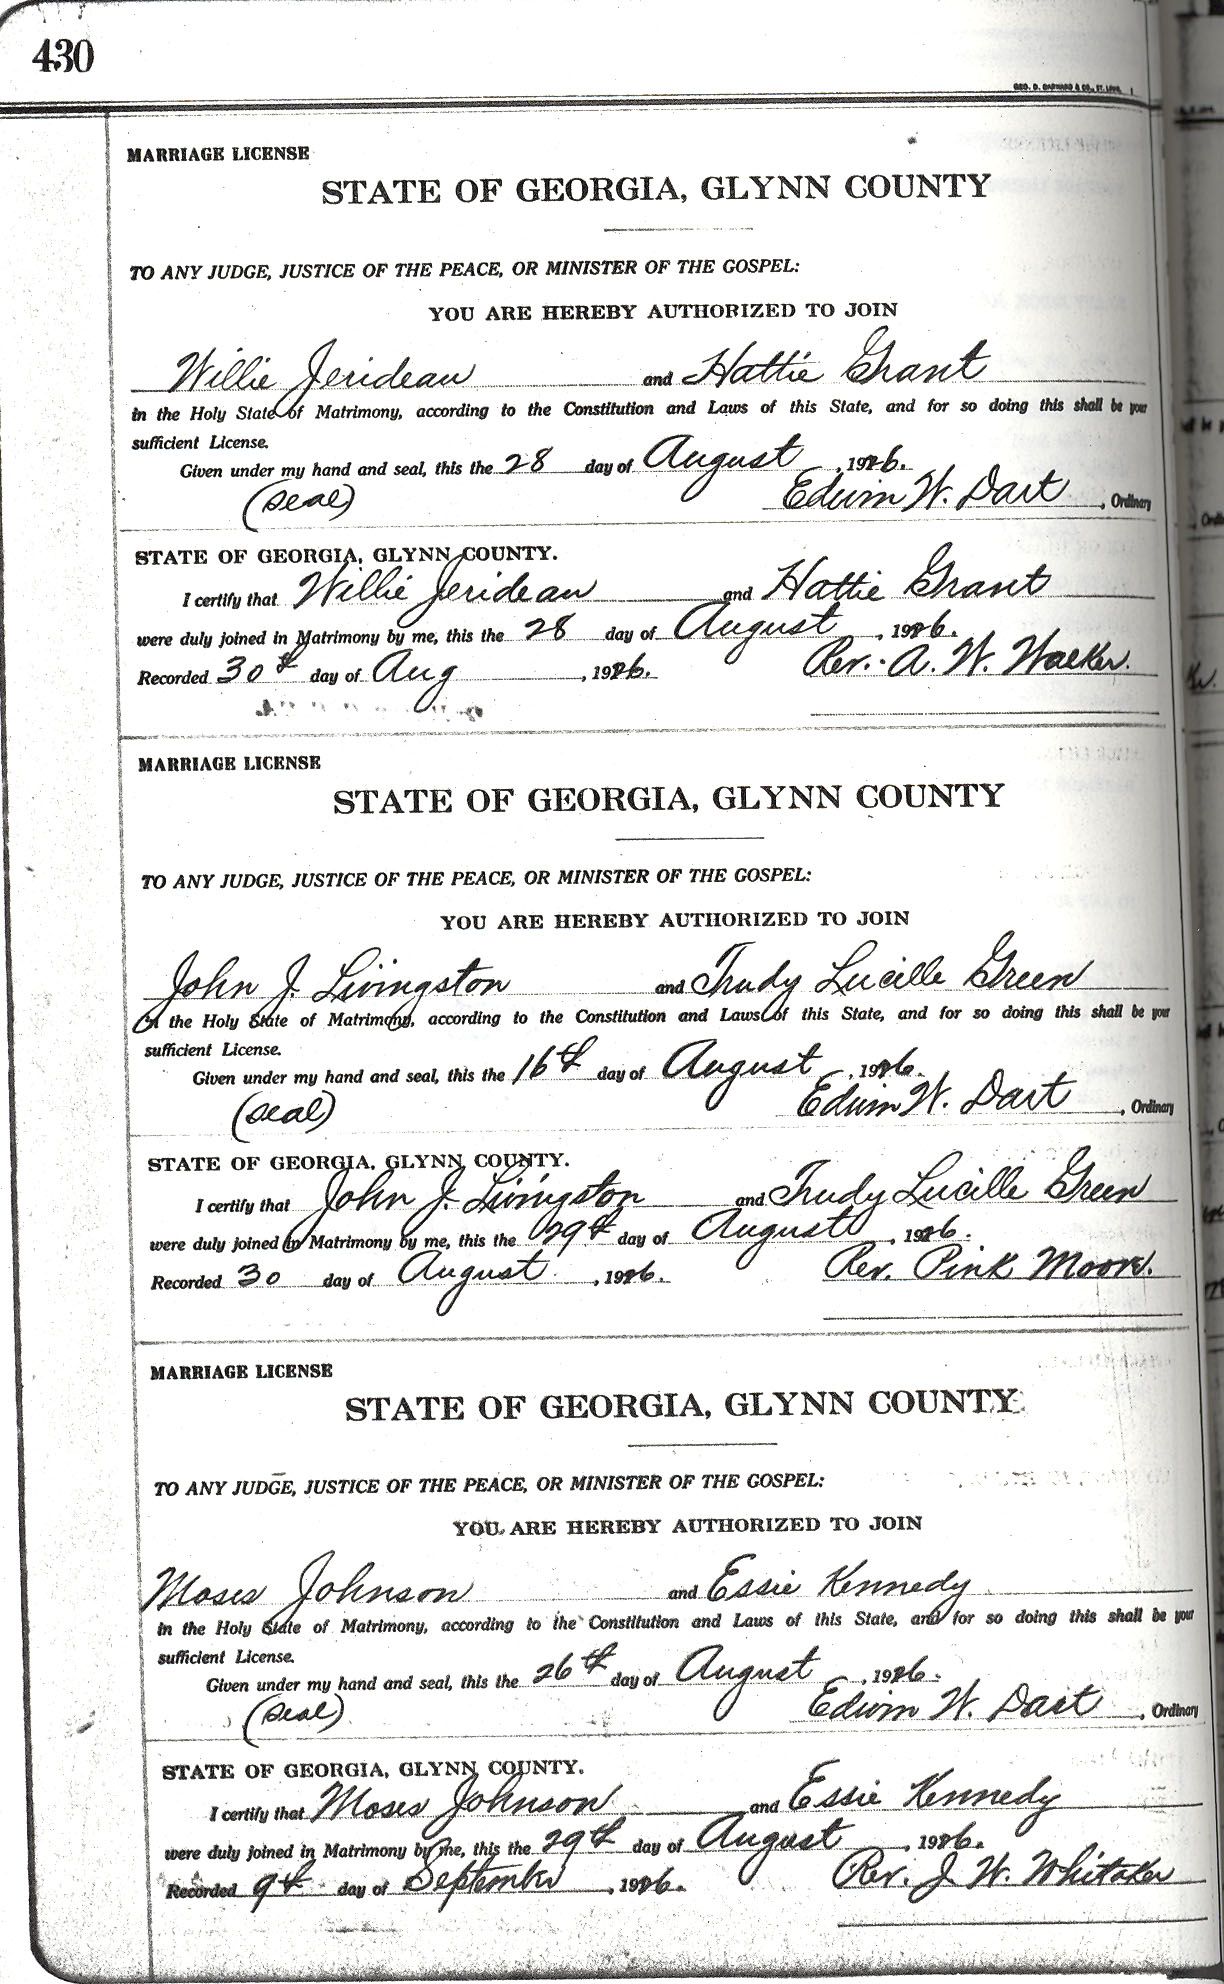 430
GEO. D. BARNARD & CO., ST. LOUIS
MARRIAGE LICENSE
STATE OF GEORGIA, GLYNN COUNTY
TO ANY JUDGE, JUSTICE OF THE PEACE, OR MINISTER OF THE GOSPEL:
YOU ARE HEREBY AUTHORIZED TO JOIN
Willie Jerideau and Hattie Grant
in the Holy State of Matrimony, according to the Constitution and Laws of this State, and for so doing this shall be your
sufficient License.
Given under my hand and seal, this the 28 day of August, 1926.
(seal) Edwin W. Dart, Ordinary
STATE OF GEORGIA, GLYNN COUNTY.
I certify that Willie Jerideau and Hattie Grant
were duly joined in Matrimony by me, this the 28 day of August, 1926.
Recorded 30th day of Aug, 1926. Rev. A. W. Walker.
MARRIAGE LICENSE
STATE OF GEORGIA, GLYNN COUNTY
TO ANY JUDGE, JUSTICE OF THE PEACE, OR MINISTER OF THE GOSPEL:
YOU ARE HEREBY AUTHORIZED TO JOIN
John J. Livingston and Trudy Lucille Green
in the Holy State of Matrimony, according to the Constitution and Laws of this State, and for so doing this shall be your
sufficient License.
Given under my hand and seal, this the 16th day of August, 1926.
(seal) Edwin W. Dart, Ordinary
STATE OF GEORGIA, GLYNN COUNTY.
I certify that John J. Livingston and Trudy Lucille Green
were duly joined in Matrimony by me, this the 29th day of August, 1926.
Recorded 30 day of August, 1926. Rev. Pink Moore.
MARRIAGE LICENSE
STATE OF GEORGIA, GLYNN COUNTY
TO ANY JUDGE, JUSTICE OF THE PEACE, OR MINISTER OF THE GOSPEL:
YOU ARE HEREBY AUTHORIZED TO JOIN
Moses Johnson and Essie Kennedy
in the Holy State of Matrimony, according to the Constitution and Laws of this State, and for so doing this shall be your
sufficient License.
Given under my hand and seal, this the 26th day of August, 1926.
(seal) Edwin W. Dart, Ordinary
STATE OF GEORGIA, GLYNN COUNTY.
I certify that Moses Johnson and Essie Kennedy
were duly joined in Matrimony by me, this the 29th day of August, 1926.
Recorded 9th day of September, 1926. Rev. J. W. Whitaker